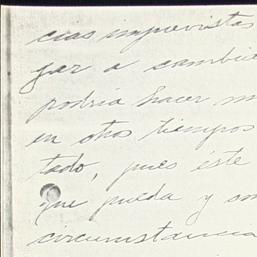 cias imprevistas
gar a cambia
podría hacer m
en otros tiempos
tado, pues éste
que pueda y con
circunstancia